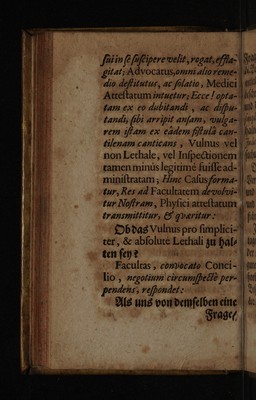 sui in se suscipere velit, rogat, efflagitat; Advocatus, omni alio remedio destitutus, ac solatio, Medici
Attestatum intuetur; Ecce! optatam ex eo dubitandi, ac disputandi, sibi arripit ansam, vulgarem istam ex eâdem fistulâ cantilenam canticans, Vulnus vel
non Lethale, vel Inspectionem
tamen minùs legitimè fuisse administratam; Hinc Casus formatur, Res ad Facultatem devolvitur Nostram, Physici attestatum
transmittitur, & qværitur:
Ob das Vulnus pro simpliciter, & absolutè Lethali zu halten sey?
Facultas, convocato Concilio, negotium circumspectè perpendens, respondet:
Als uns von demselben eine
Frage/